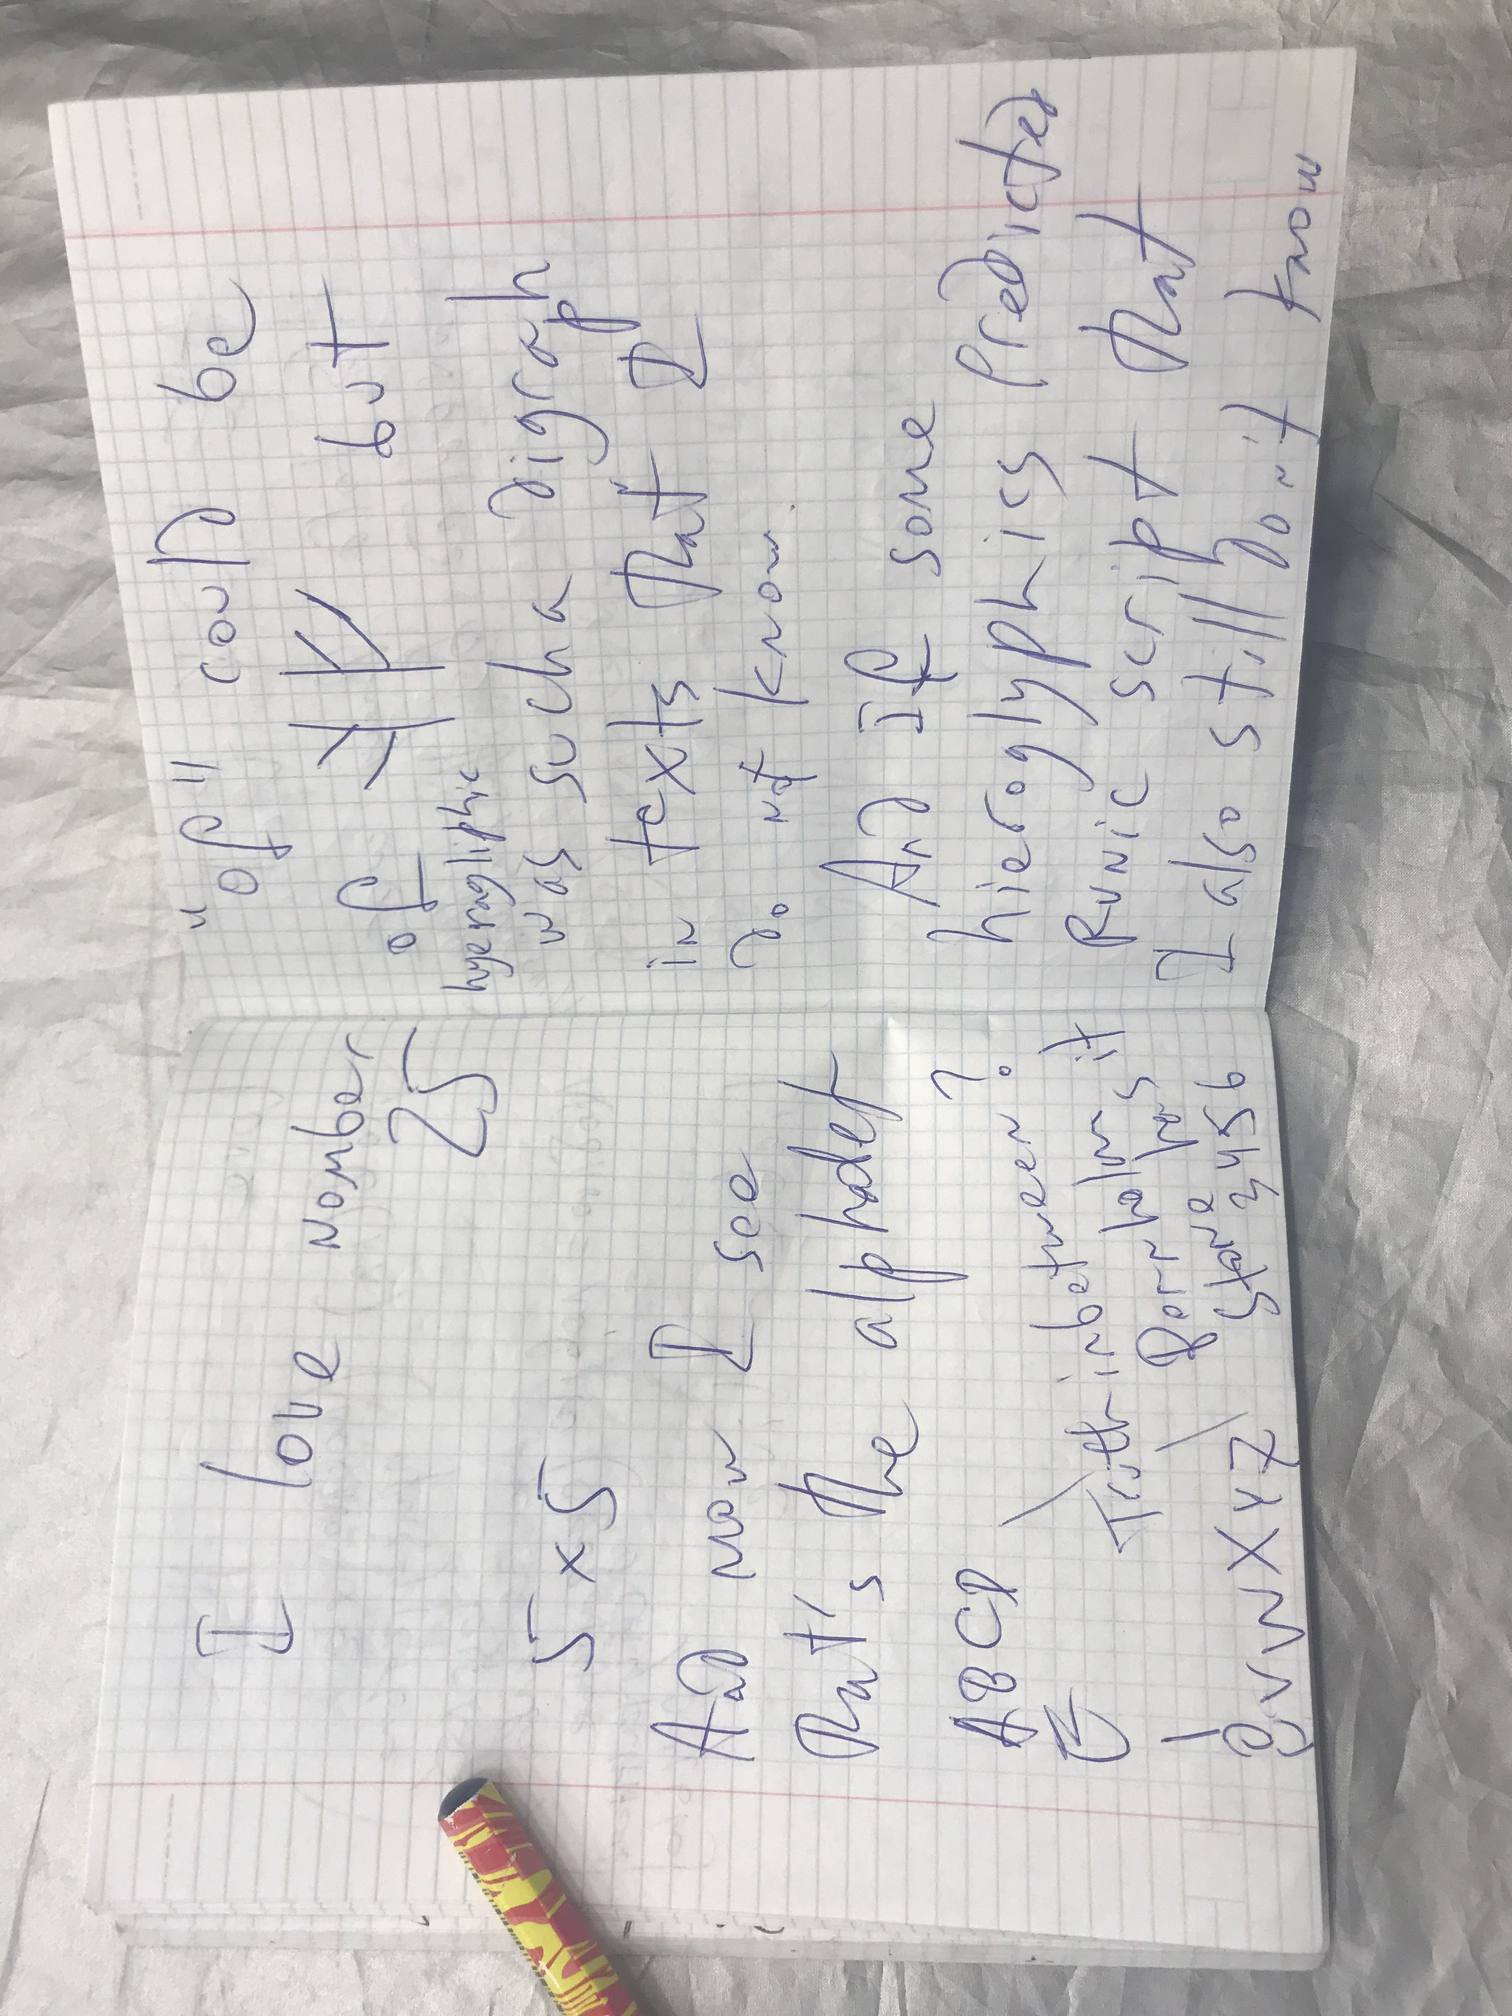 I love
nomber
25
5 x 5
And now I see
that's the alphabet
ABCD
inbetween?
Truth
has it
UVWXYZ
3456
"of" could be
of ᛉᚴ but
hyerogliphic
was such a digraph
in texts that I
do not know.
And if some
hieroglyphics predicted
Runic script that
I also still don't know